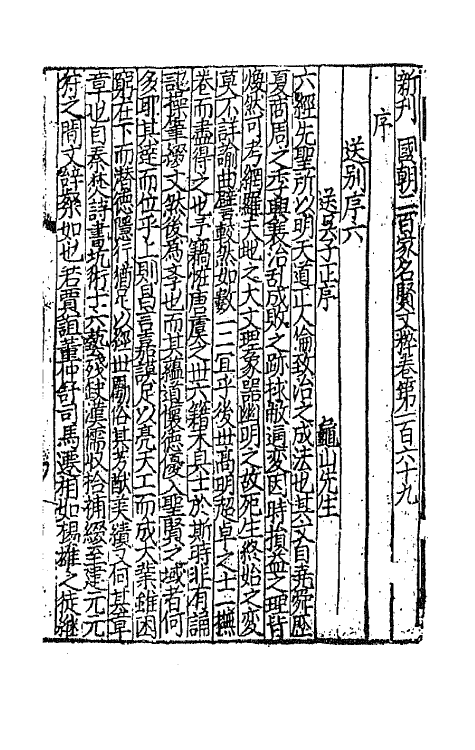 新刊 國朝二百家名賢文粹卷第一百六十九
序
送别序六
送吳子正序 龜山先生
六經先聖所以明天道正人倫致治之成法也其文自堯舜歷
夏商周之季興衰治亂成敗之跡捄敝通變因時損益之理皆
煥然可考網羅天地之大文理象器幽明之故死生終始之變
莫不詳諭曲譬較然如數一二宜乎後世高明超卓之士一撫
卷而盡得之也予竊怪唐虞之世六籍未具士於斯時非有誦
記操筆綴文然後為學也而其蘊道懷德優入聖賢之域者何
多耶其達而位乎上則昌言嘉謨足以亮天工而成大業雖困
窮在下而潛德隱行猶足以經世勵俗其芳猷美績又何其章
章也自秦焚詩書坑術士六藝殘缺漢儒收拾補綴至建元元
狩之間文辭粲如也若賈誼董仲舒司馬遷相如揚雄之徒繼